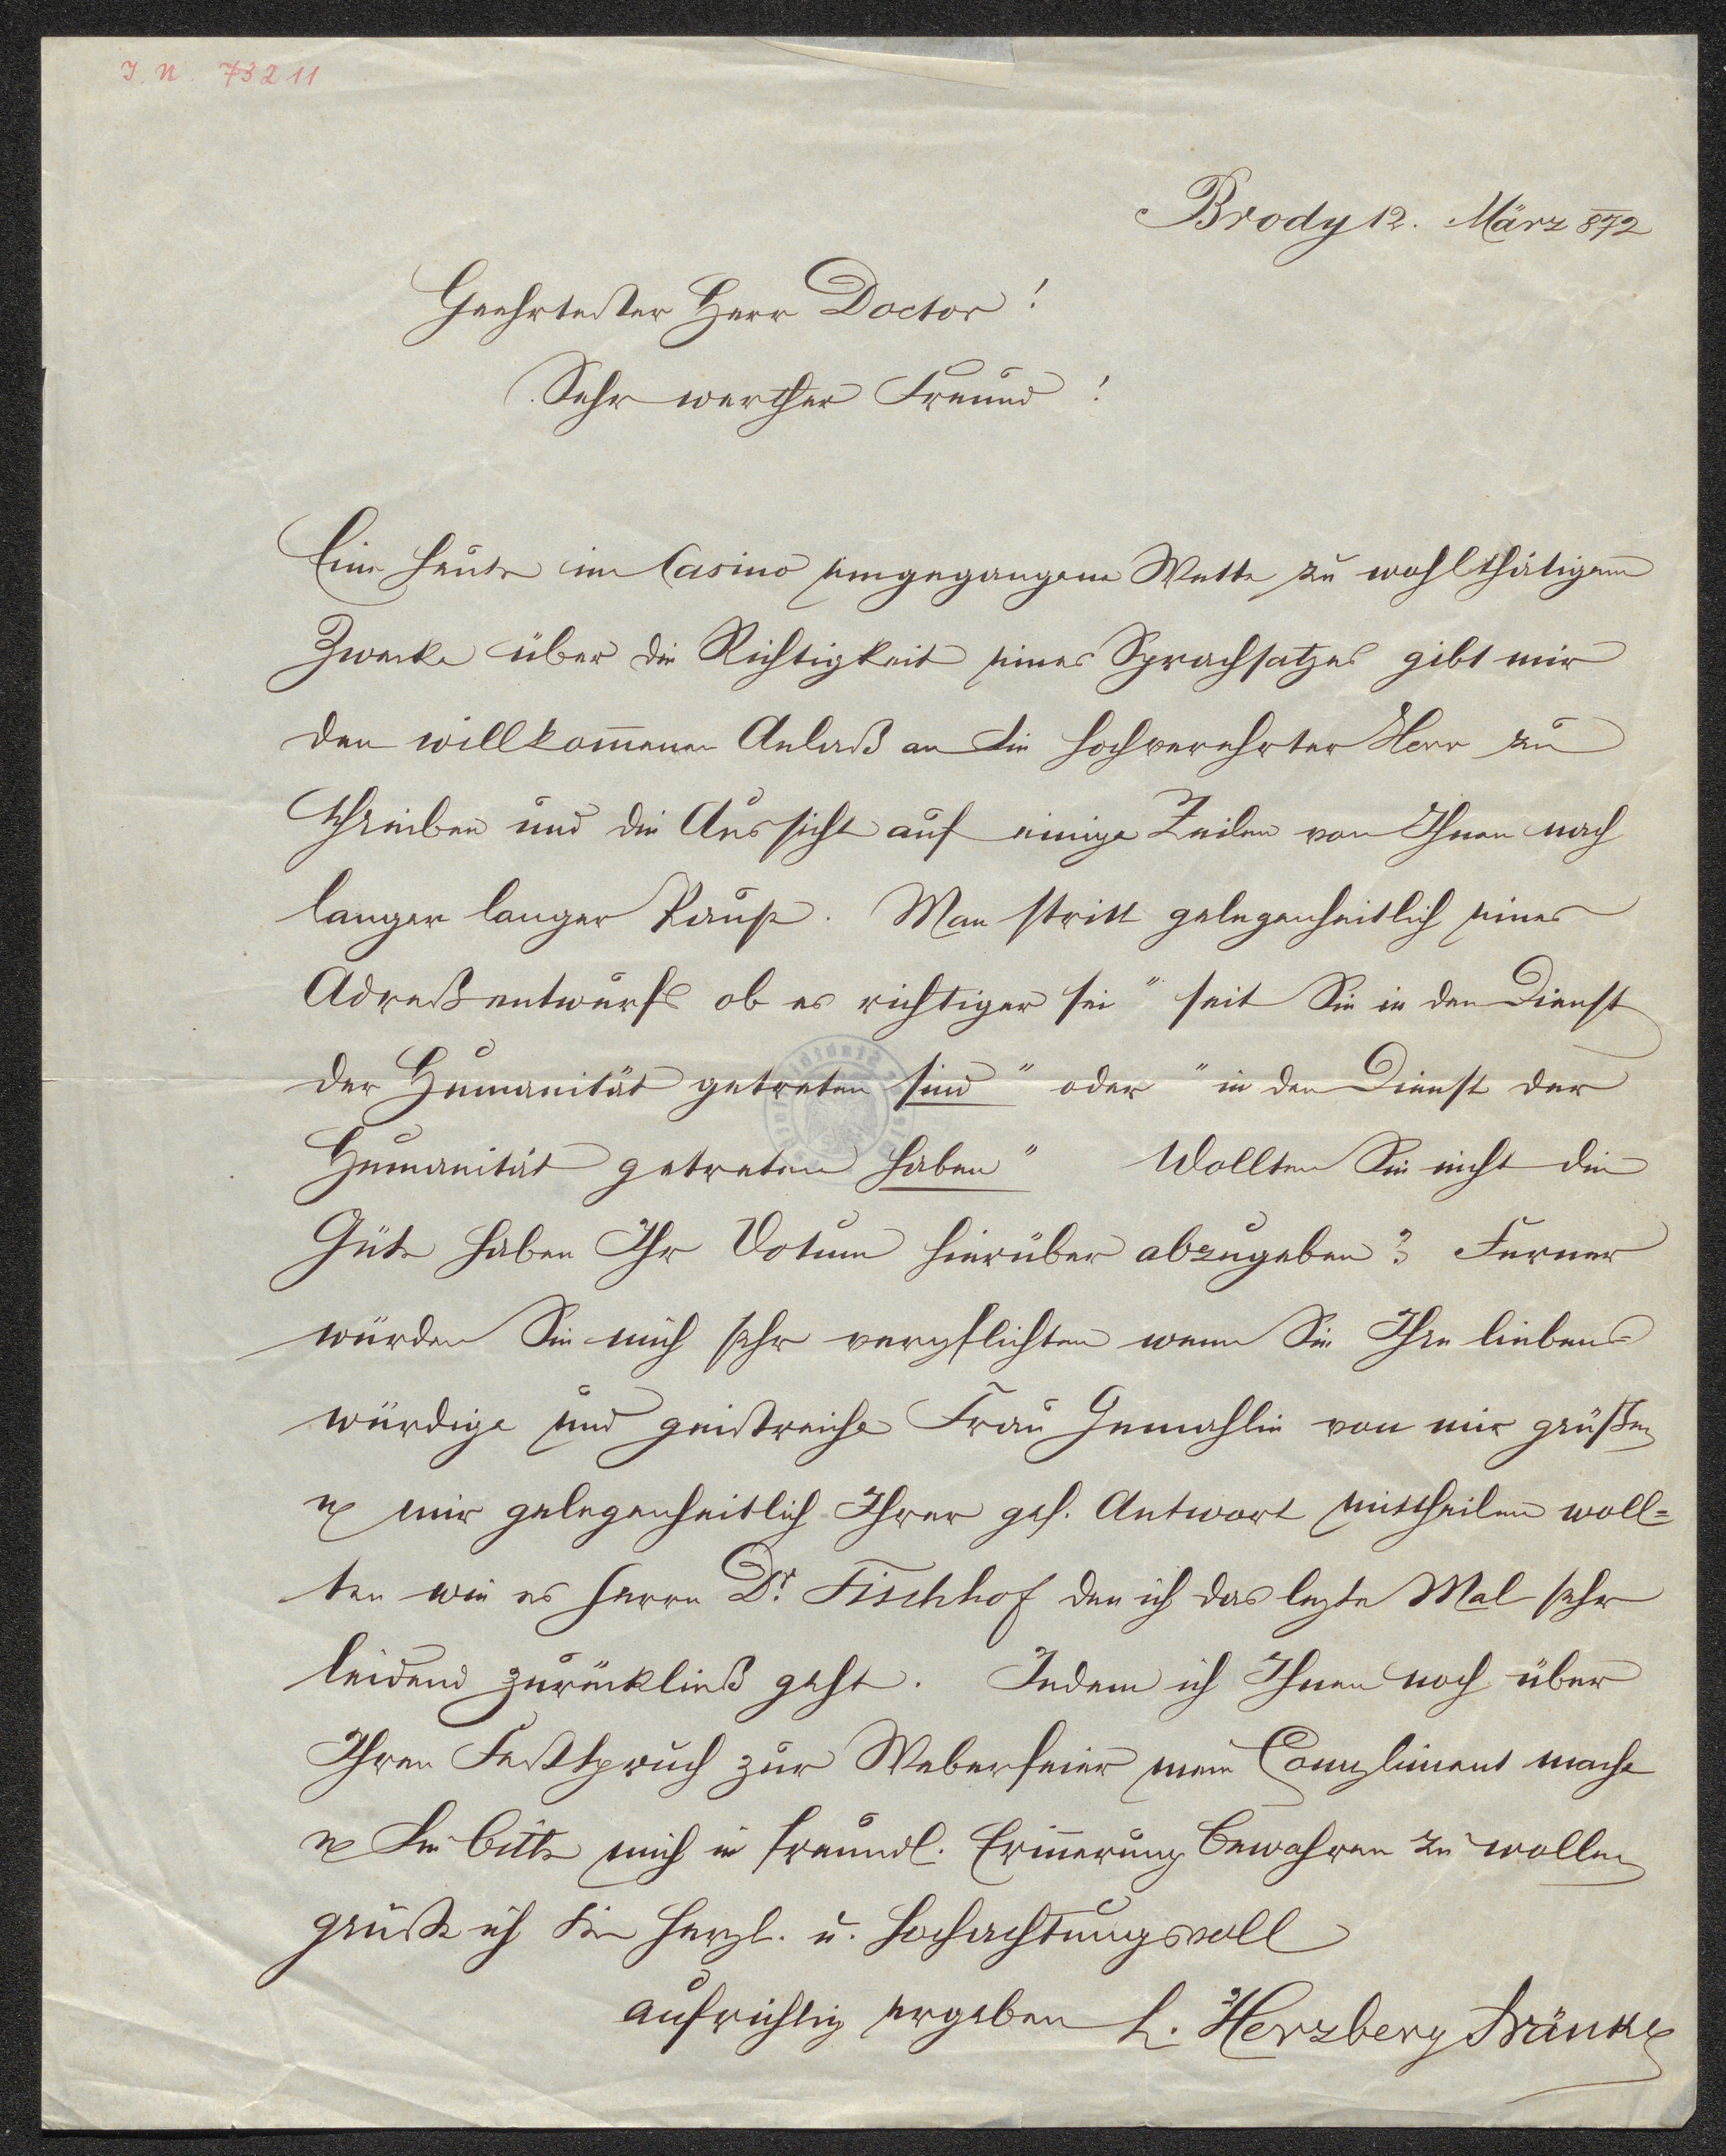 I. N. 73211
Brody 12. März 872
Geehrtester Herr Doctor!
Sehr werther Freund!
Eine heute im Casino eingegangene Wette zu wohlthätigem
Zwecke über die Richtigkeit eines Sprachsatzes gibt mir
den willkom̅enen Anlaß an Sie hochverehrter Herr zu
schreiben und die Aussicht auf einige Zeilen von Ihnen nach
langer langer Pause. Man stritt gelegenheitlich eines
Adreßentwurfs ob es richtiger sei "seit Sie in den Dienst
der Humanität getreten sind" oder "in den Dienst der
Humanität getreten haben" Wollten Sie nicht die
Güte haben Ihr Votum hierüber abzugeben? Ferner
würden Sie mich sehr verpflichten wenn Sie Ihre liebens=
würdige und geistreiche Frau Gemahlin von mir grüßen
u mir gelegenheitlich Ihrer gef. Antwort mittheilen woll=
ten wie es Herrn Dr. Fischhof den ich das lezte Mal sehr
leidend zurückließ geht. Indem ich Ihnen noch über
Ihren Festspruch zur Weberfeier mein Compliment mache
u Sie bitte mich in freundl. Erin̅erung bewahren zu wollen
grüße ich Sie herzl. u. hochachtungsvoll
aufrichtig ergeben L. Herzberg Fränkel